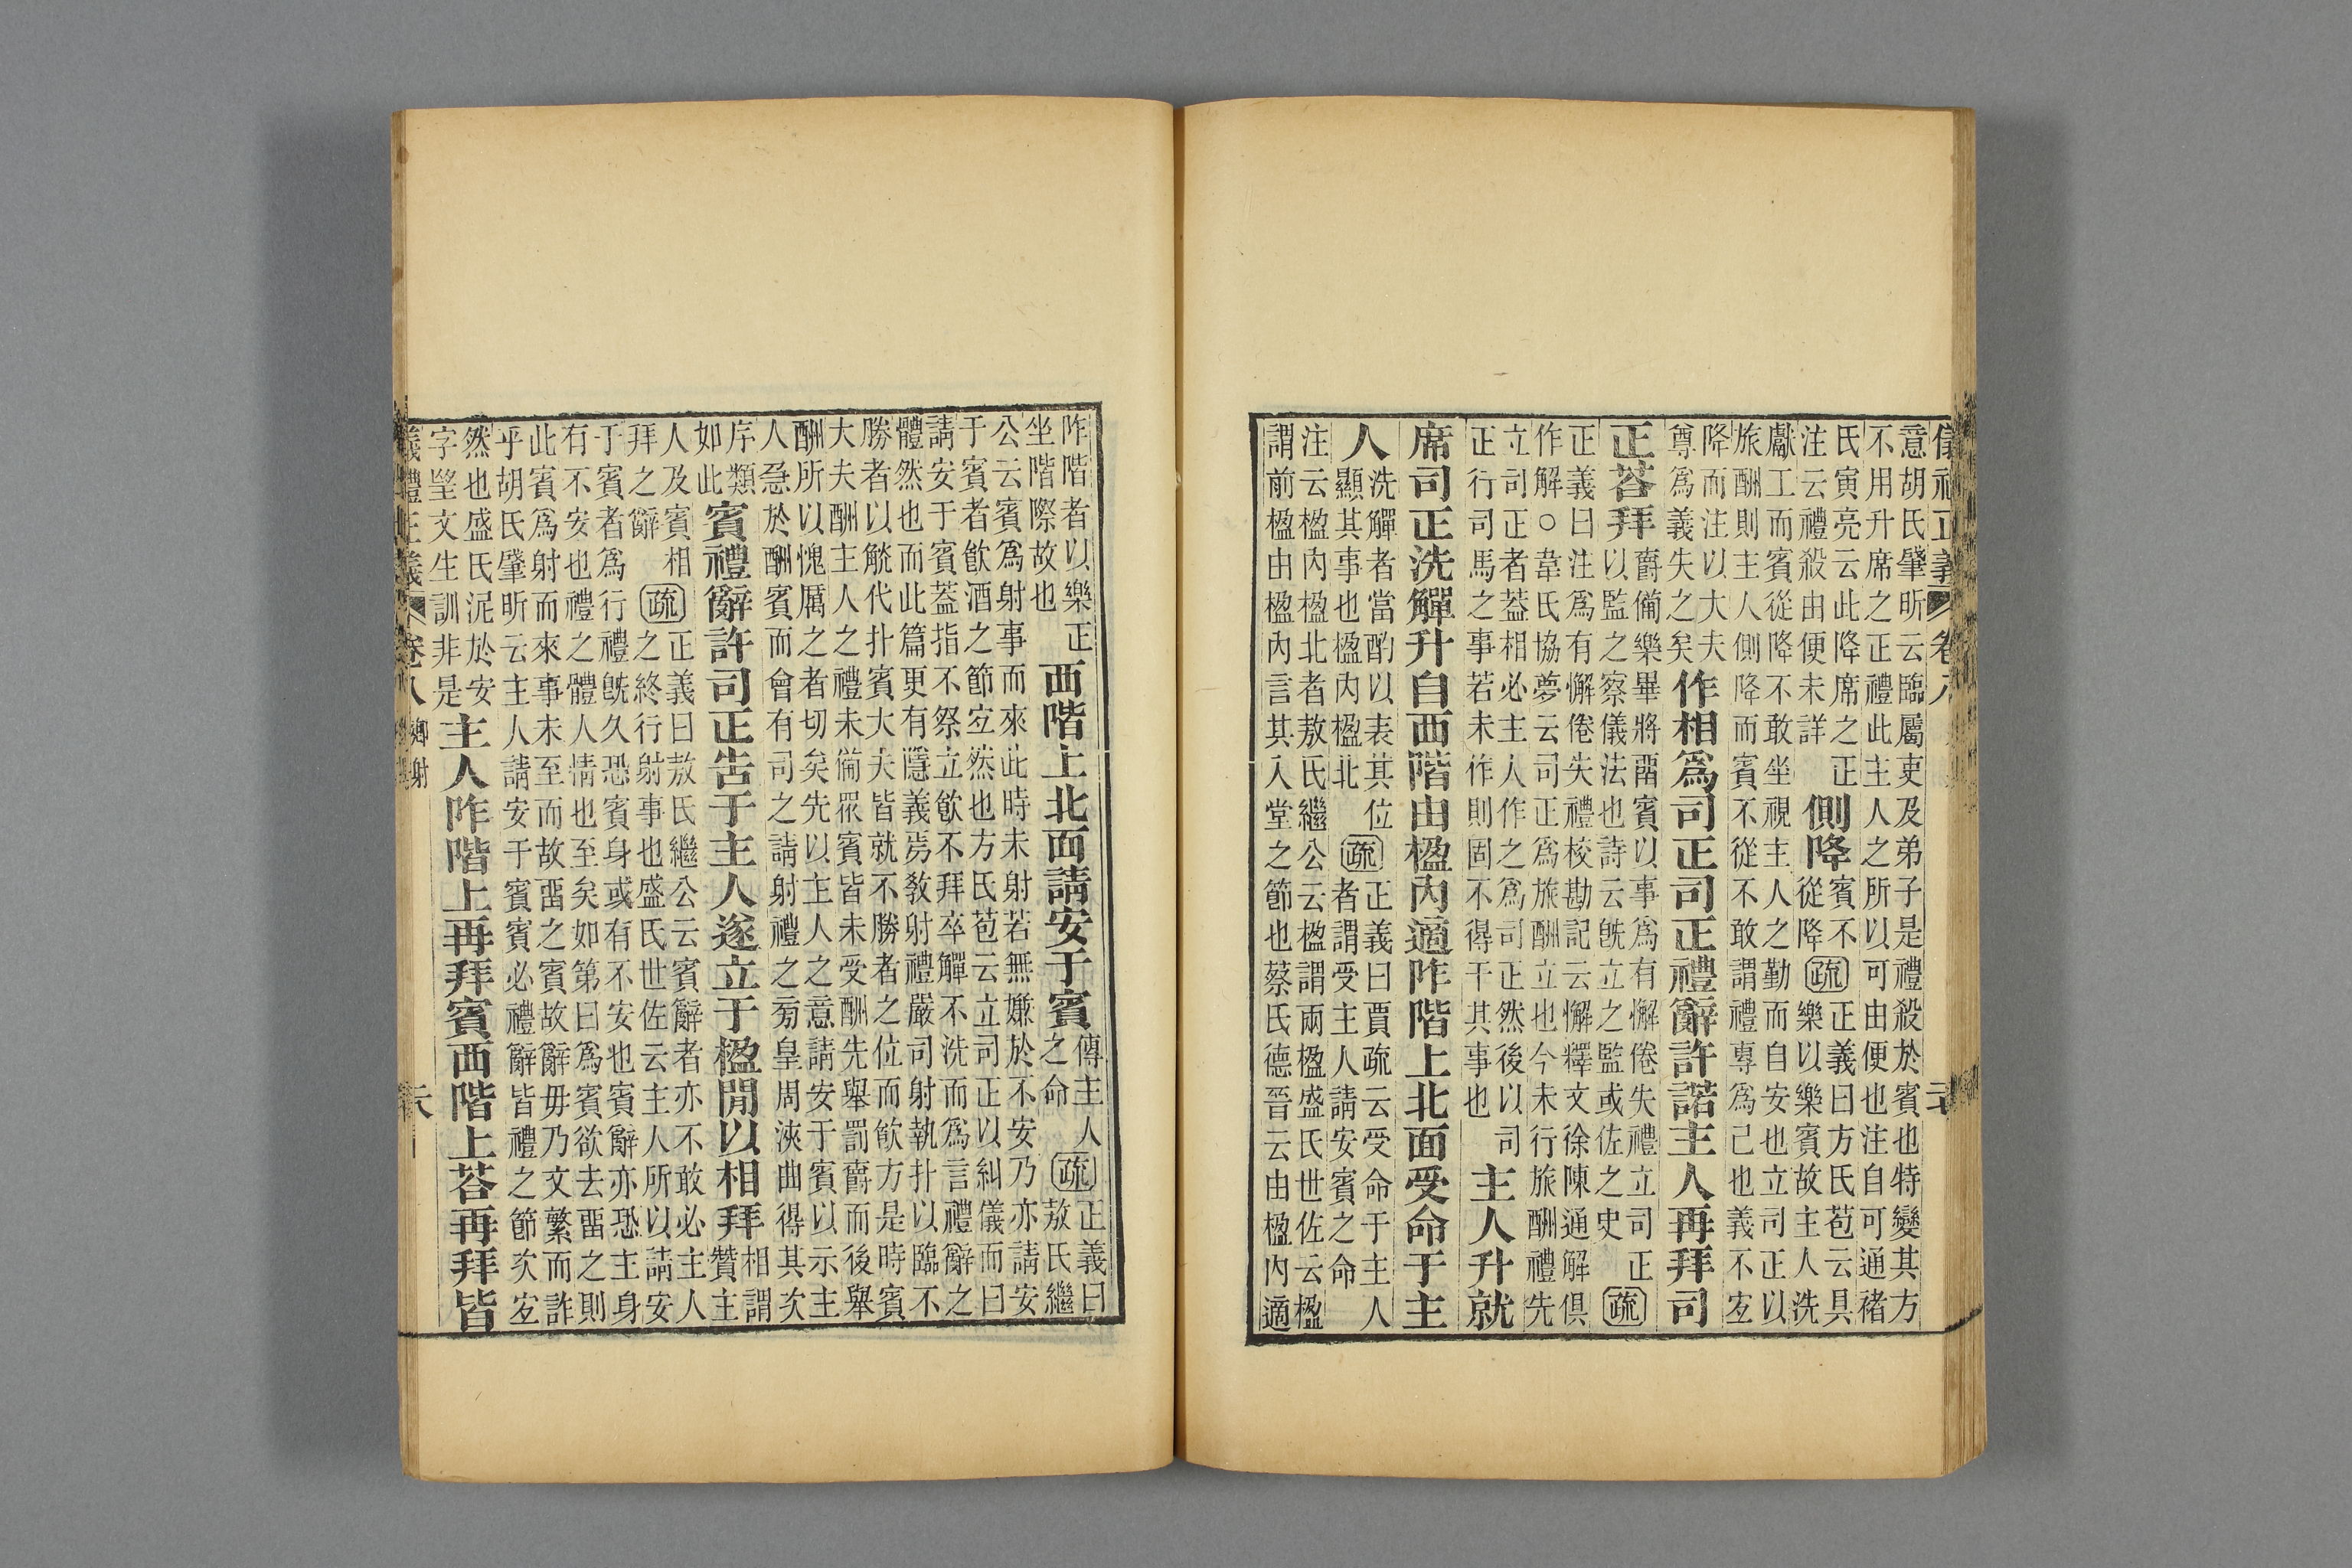 儀禮正義 卷八
意胡氏肇昕云臨屬吏及弟子是禮殺於賓也特變其方
不用升席之正禮此主人之所以可由便也注自可通褚
氏寅亮云此降席之正
注云禮殺由便未詳
側降
賓不
從降
疏
正義曰方氏苞云具
樂以樂賓故主人洗
獻工而賓從降不敢坐視主人之勤而自安也立司正以
旅酬則主人側降而賓不從不敢謂禮專爲己也義不㝎
降而注以大夫
尊爲義失之矣
作相爲司正司正禮辭許諾主人再拜司
正荅拜
爵備樂畢將畱賓以事爲有懈倦失禮立司正
以監之察儀法也詩云旣立之監或佐之史
疏
正義曰注爲有懈倦失禮校勘記云懈釋文徐陳通解俱
作解○韋氏協夢云司正爲旅酬立也今未行旅酬禮先
立司正者蓋相必主人作之爲司正然後以司
正行司馬之事若未作則固不得干其事也
主人升就
席司正洗觶升自西階由楹內適阼階上北面受命于主
人
洗觶者當酌以表其位
顯其事也楹內楹北
疏
正義曰賈疏云受命于主人
者謂受主人請安賓之命
注云楹內楹北者敖氏繼公云楹謂兩楹盛氏世佐云楹
謂前楹由楹內言其入堂之節也蔡氏德晉云由楹內適
阼階者以樂正
坐階際故也
西階上北面請安于賓
傳主人
之命
疏
正義曰
敖氏繼
公云賓爲射事而來此時未射若無嫌於不安乃亦請安
于賓者飮酒之節㝎然也方氏苞云立司正以糾儀而曰
請安于賓蓋指不祭立飮不拜卒觶不洗而爲言禮辭之
體然也而此篇更有隱義焉敎射禮嚴司射執扑以臨不
勝者以觥代扑賓大夫皆就不勝者之位而飮方是時賓
大夫酬主人之禮未備眾賓皆未受酬先舉罰爵而後舉
酬所以愧厲之者切矣先以主人之意請安于賓以示主
人急於酬賓而會有司之請射禮之旁皇周浹曲得其次
序類
如此
賓禮辭許司正告于主人遂立于楹閒以相拜
相謂
贊主
人及賓相
拜之辭
疏
正義曰敖氏繼公云賓辭者亦不敢必主人
之終行射事也盛氏世佐云主人所以請安
于賓者爲行禮旣久恐賓身或有不安也賓辭亦恐主身
有不安也禮之體人情也至矣如第曰爲賓欲去畱之則
此賓爲射而來事未至而故畱之賓故辭毋乃文繁而詐
乎胡氏肇昕云主人請安于賓賓必禮辭皆禮之節次㝎
然也盛氏泥於安
字望文生訓非是
主人阼階上再拜賓西階上荅再拜皆
義禮正義 卷八 鄉射